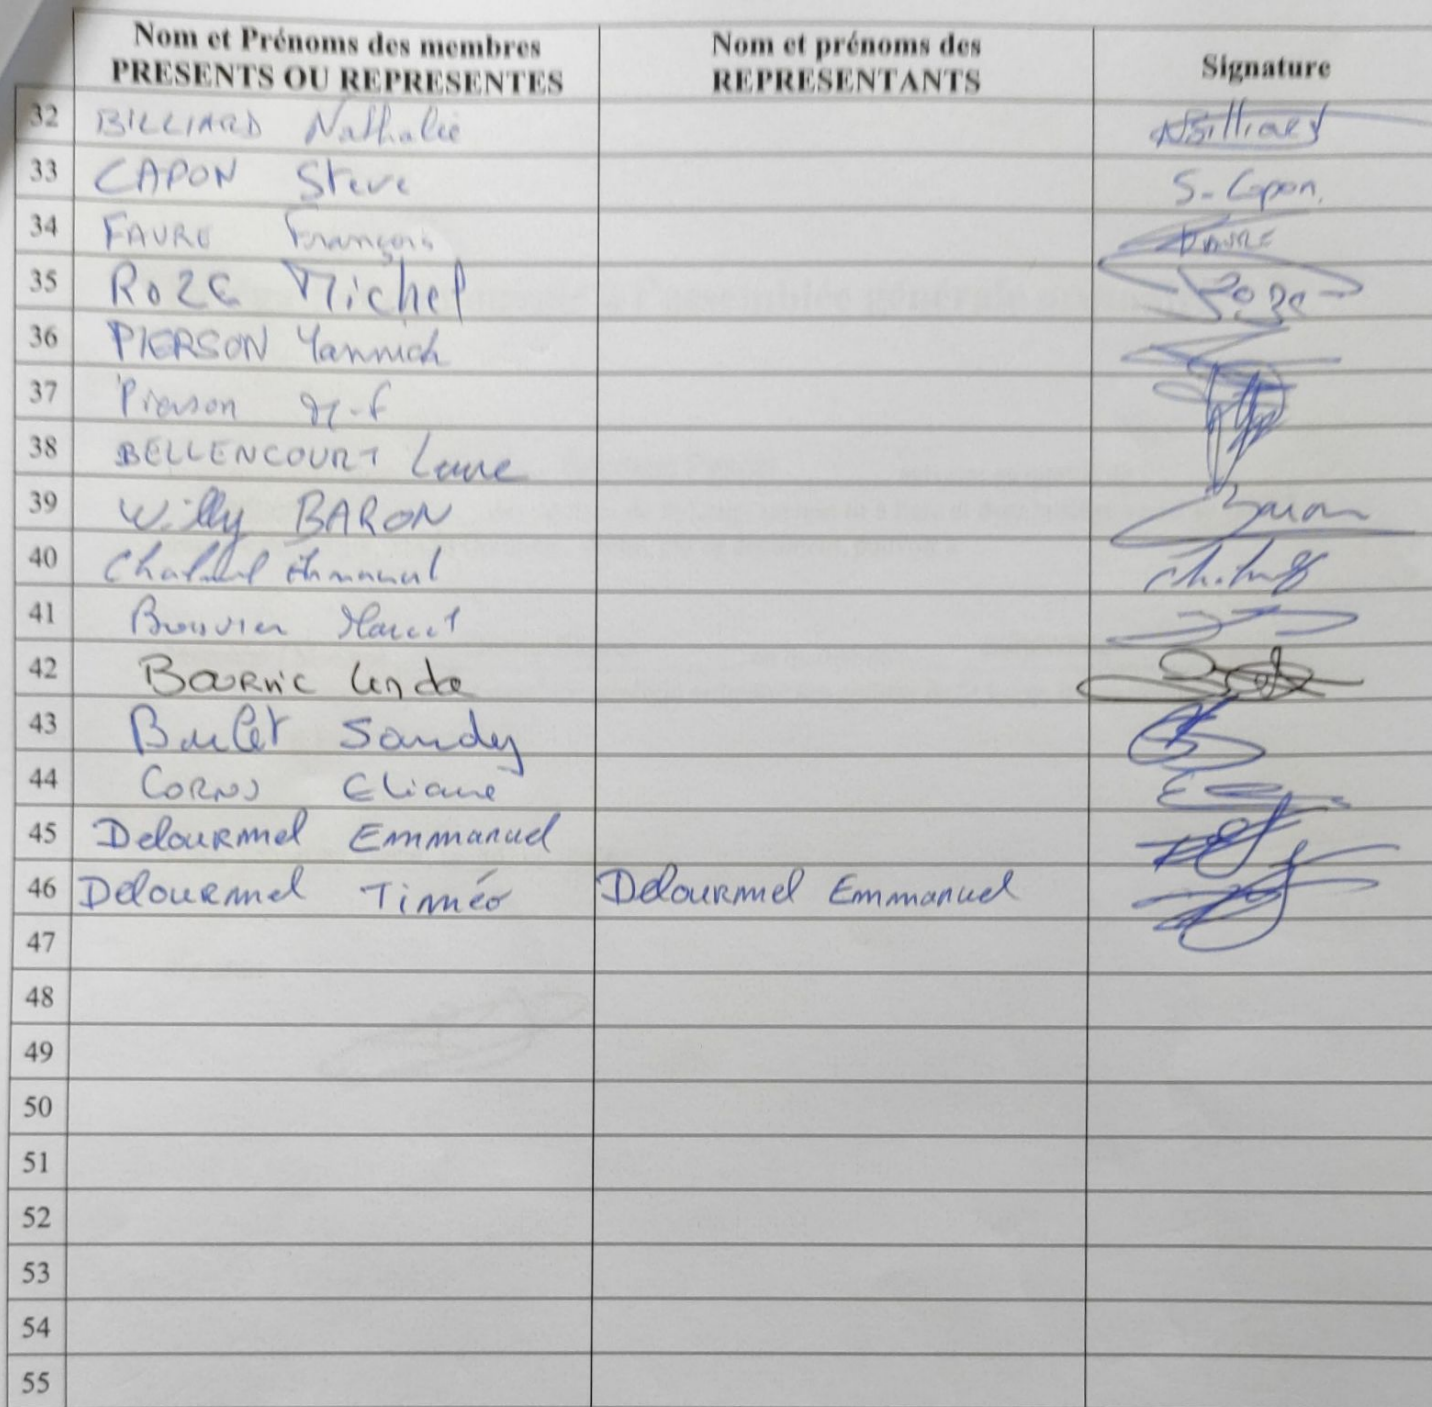 Nom et Prénoms des membres
PRESENTS OU REPRESENTES
Nom et prénoms des
REPRESENTANTS
Signature
32 BILLIARD Nathalie NBilliard
33 CAPON Steve S-Capon.
34 FAVRE François FAVRE
35 ROZE Michel Roze
36 PIERSON Yannick
37 Pierson M-F
38 BELLENCOURT
39 Willy BARON Baron
40 Emmanuel
41 Bouvier Marcel
42 Linda
43 Sandy
44 Eliane
45 Delourmel Emmanuel
46 Delourmel Timéo Delourmel Emmanuel
47
48
49
50
51
52
53
54
55